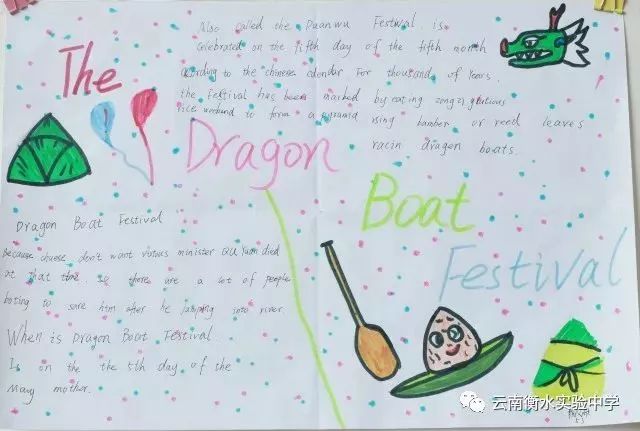 The
Dragon
Boat
Festival
Also called the Duanwu Festival is
celebrated on the fifth day of the fifth month
according to the chinese calendar For thousand of
the festival has been marked by eating zongzi glutious
rice to form a pyramid using bamber or reed leaves
racin dragon boats.
Dragon Boat Festival
Because don't want minister QU Yuan died
at that time. so there are a lot of people
boting to save him after he jumping into river
When is Dragon Boat Festival
Is on the the 5th day of the
Many mother.
云南衡水实验中学